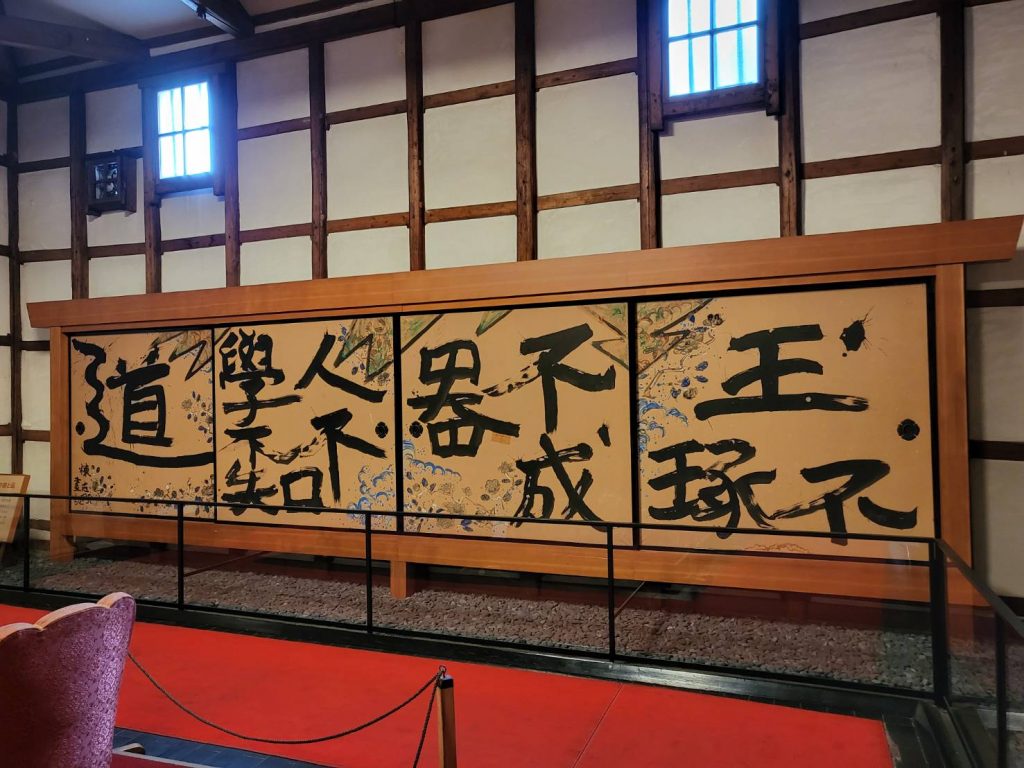 玉
不琢
不成
器
人不
學不知
道